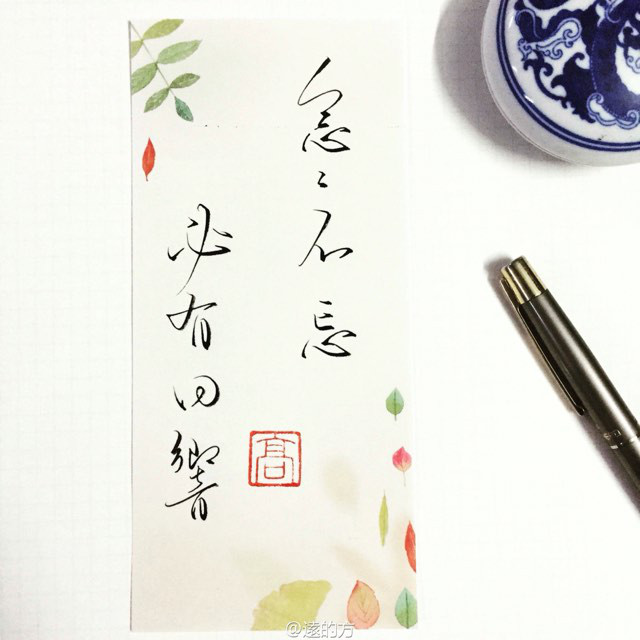 念〻不忘
必有回響
高
@遠的方